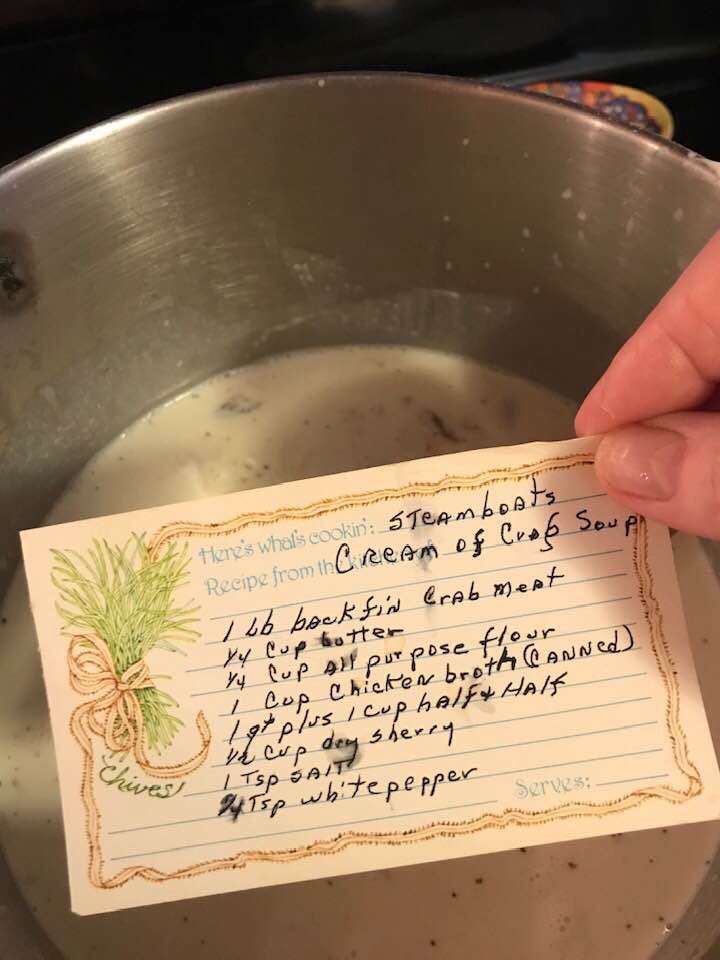 Here's what's cookin': STEAMboATs
Recipe from the kitchen CREAM of CrAb SouP
1 Lb backfin CrAb MeAT
1/4 Cup butter
1/4 Cup All purpose flour
1 Cup Chicken broth (CANNed)
1 qt plus 1 cup hAlf & HAlf
1/2 Cup dry sherry
1 Tsp SAlT
Tsp white pepper
Serves:
Chives